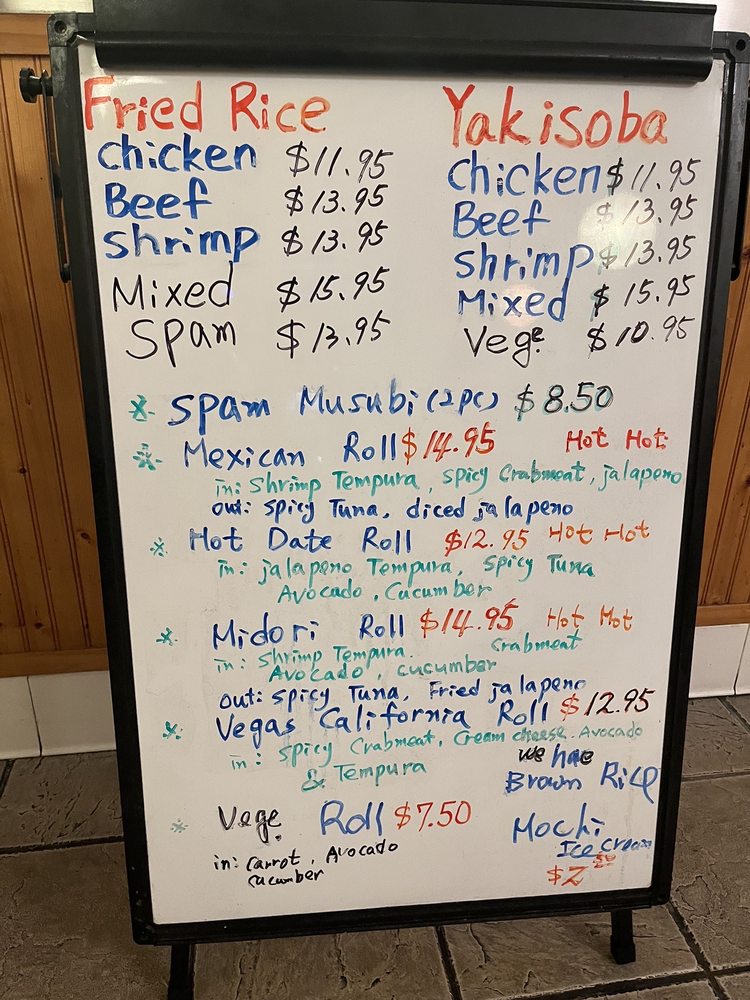 Fried Rice
Chicken $11.95
Beef $13.95
Shrimp $13.95
Mixed $15.95
Spam $13.95
Yakisoba
Chicken $11.95
Beef $13.95
Shrimp $13.95
Mixed $15.95
Vege. $10.95
Spam Musubi (2pc) $8.50
Mexican Roll $14.95 Hot Hot
in: Shrimp Tempura, spicy Crabmeat, jalapeno
out: spicy Tuna, diced jalapeno
Hot Date Roll $12.95 Hot Hot
in: jalapeno Tempura, spicy Tuna
Avocado, Cucumber
Midori Roll $14.95 Hot Hot
in: Shrimp Tempura. Crabmeat
Avocado, cucumber
out: spicy Tuna, Fried jalapeno
Vegas California Roll $12.95
in: spicy Crabmeat, Cream cheese, Avocado
& Tempura
we hae
Brown Rice
Vege. Roll $7.50
in: Carrot, Avocado
cucumber
Mochi
Ice Cream
$2